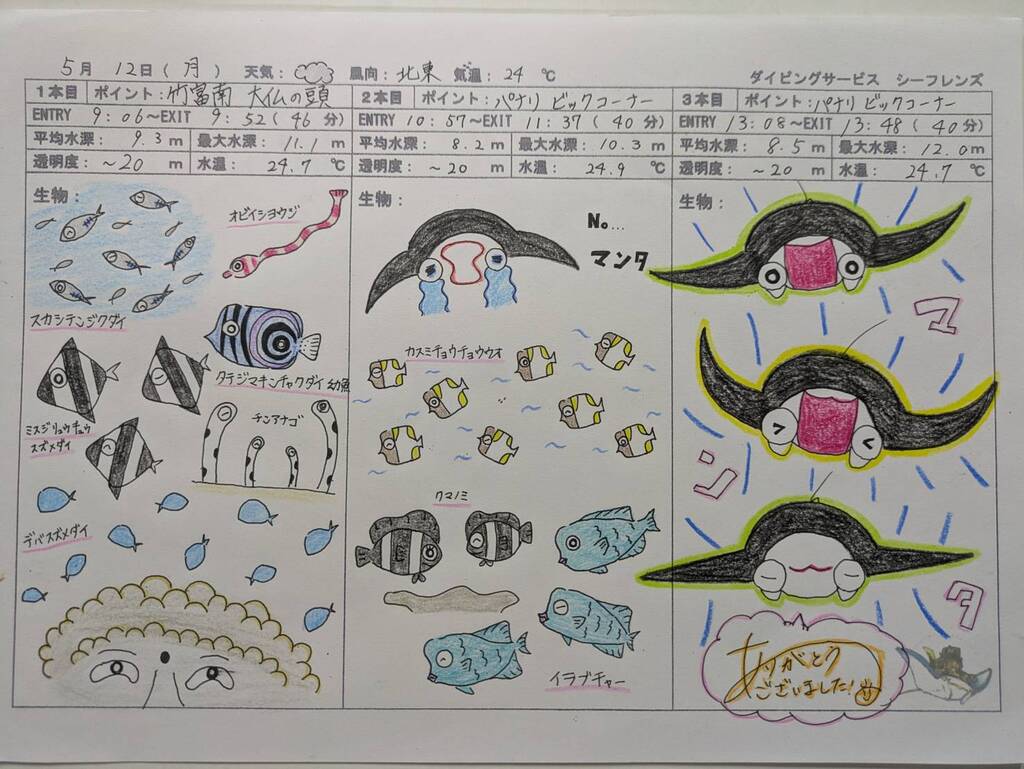 5月 12日(月) 天気: 風向: 北東 気温: 24 ℃
ダイビングサービス シーフレンズ
1本目 ポイント: 竹富南 大仏の頭
ENTRY 9:06～EXIT 9:52(46分)
平均水深: 9.3 m 最大水深: 11.1 m
透明度: ~20 m 水温: 24.7 ℃
生物:
オビイシヨウジ
スカシテンジクダイ
タテジマキンチャクダイ幼魚
ミスジリュウキュウ
スズメダイ
チンアナゴ
デバスズメダイ
2本目 ポイント: パナリ ビックコーナー
ENTRY 10:57～EXIT 11:37(40分)
平均水深: 8.2 m 最大水深: 10.3 m
透明度: ~20 m 水温: 24.9 ℃
生物:
No...
マンタ
カスミチョウチョウウオ
クマノミ
イラブチャー
3本目 ポイント: パナリ ビックコーナー
ENTRY 13:08～EXIT 13:48(40分)
平均水深: 8.5 m 最大水深: 12.0 m
透明度: ~20 m 水温: 24.7 ℃
生物:
マ
ン
タ
ありがとう
ございました!